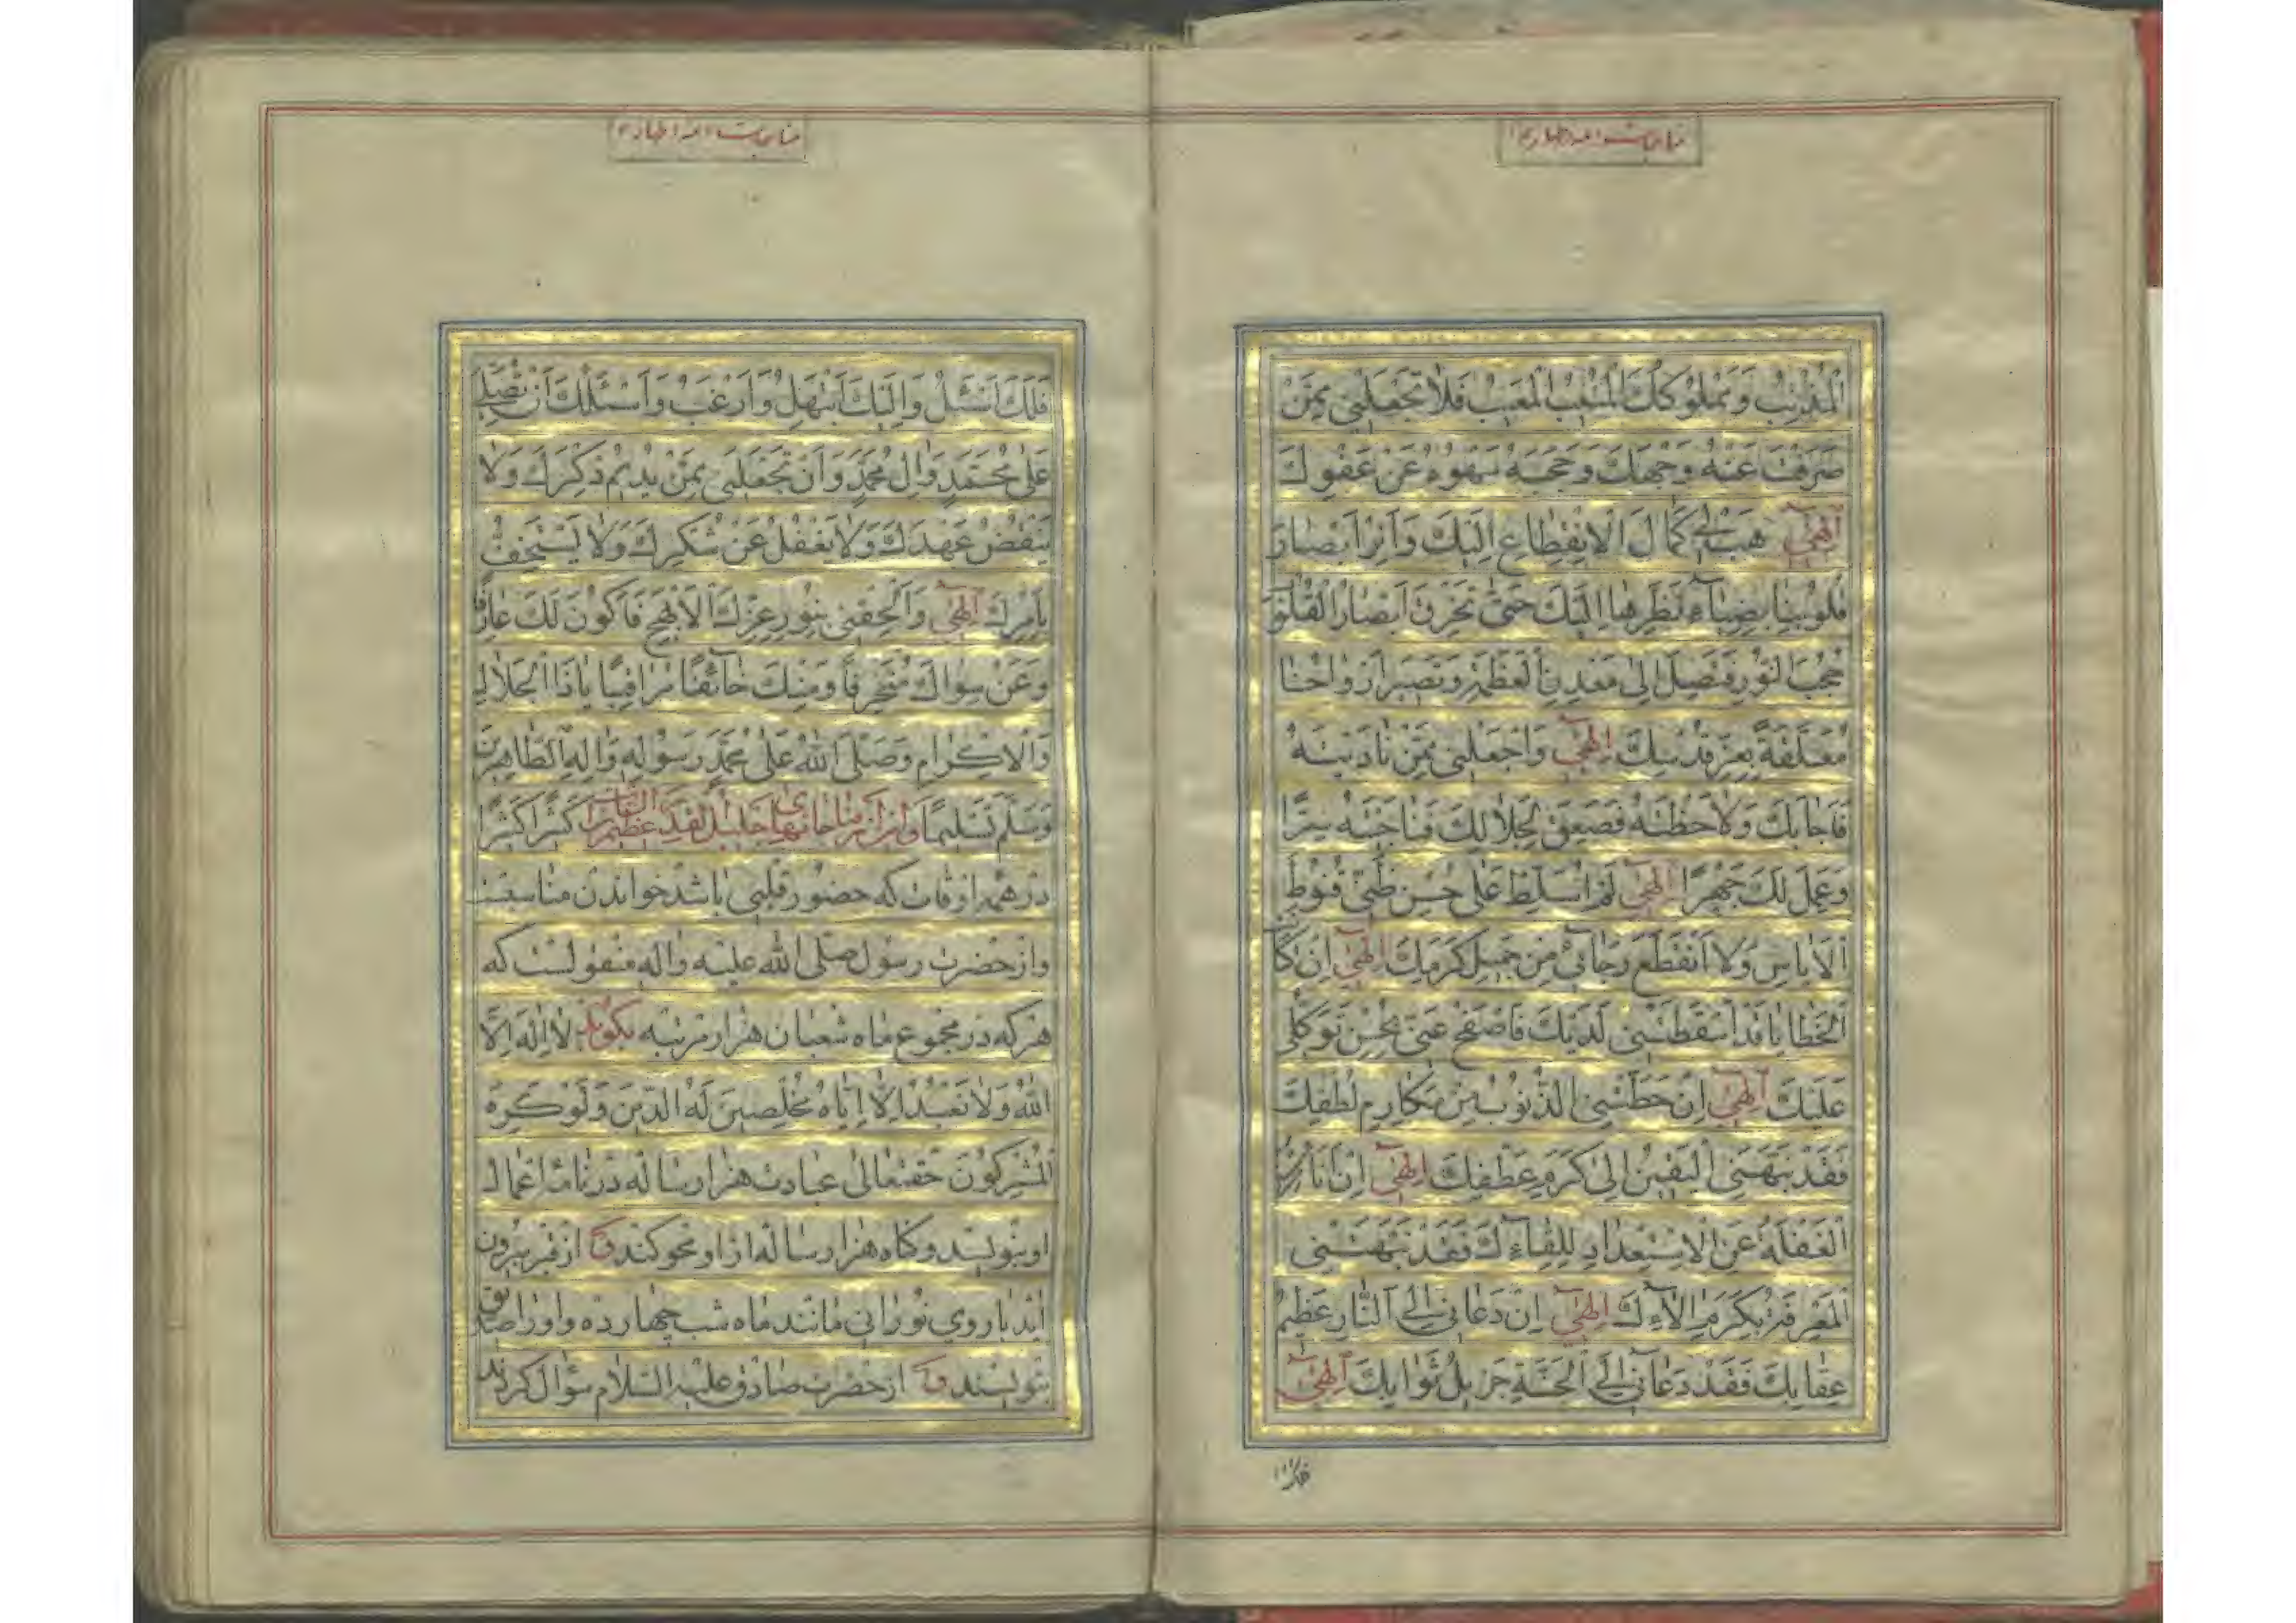 مناجات ائمه اطهار ع
الْمُذْنِبُ وَمَمْلُوكُكَ الْمُنِيبُ الْمَعِيبُ فَلَا تَجْعَلْنِي مِمَّنْ
صَرَفْتَ عَنْهُ وَجْهَكَ وَحَجَبَهُ سَهْوُهُ عَنْ عَفْوِكَ
اِلٰهِي هَبْ لِي كَمَالَ الْاِنْقِطَاعِ اِلَيْكَ وَاَنِرْ اَبْصَارَ
قُلُوبِنَا بِضِيَاءِ نَظَرِهَا اِلَيْكَ حَتّٰى تَخْرِقَ اَبْصَارُ الْقُلُوبِ
حُجُبَ النُّورِ فَتَصِلَ اِلٰى مَعْدِنِ الْعَظَمَةِ وَتَصِيرَ اَرْوَاحُنَا
مُعَلَّقَةً بِعِزِّ قُدْسِكَ اِلٰهِي وَاجْعَلْنِي مِمَّنْ نَادَيْتَهُ
فَاَجَابَكَ وَلَاحَظْتَهُ فَصَعِقَ لِجَلَالِكَ فَنَاجَيْتَهُ سِرًّا
وَعَمِلَ لَكَ جَهْرًا اِلٰهِي لَمْ اُسَلِّطْ عَلٰى حُسْنِ ظَنِّي قُنُوطَ
الْاَيَاسِ وَلَا انْقَطَعَ رَجَائِي مِنْ جَمِيلِ كَرَمِكَ اِلٰهِي اِنْ كَانَتِ
الْخَطَايَا قَدْ اَسْقَطَتْنِي لَدَيْكَ فَاصْفَحْ عَنِّي بِحُسْنِ تَوَكُّلِي
عَلَيْكَ اِلٰهِي اِنْ حَطَّتْنِي الذُّنُوبُ مِنْ مَكَارِمِ لُطْفِكَ
فَقَدْ نَبَّهَنِي الْيَقِينُ اِلٰى كَرَمِ عَطْفِكَ اِلٰهِي اِنْ اَنَامَتْنِي
الْغَفْلَةُ عَنِ الْاِسْتِعْدَادِ لِلِقَاءِكَ فَقَدْ نَبَّهَتْنِي
الْمَعْرِفَةُ بِكَرَمِ اٰلَاءِكَ اِلٰهِي اِنْ دَعَانِي اِلَى النَّارِ عَظِيمُ
عِقَابِكَ فَقَدْ دَعَانِي اِلَى الْجَنَّةِ جَزِيلُ ثَوَابِكَ اِلٰهِي
فلک
مناجات ائمه اطهار ع
فَلَكَ اَسْئَلُ وَاِلَيْكَ اَبْتَهِلُ وَاَرْغَبُ وَاَسْئَلُكَ اَنْ تُصَلِّيَ
عَلٰى مُحَمَّدٍ وَاٰلِ مُحَمَّدٍ وَاَنْ تَجْعَلَنِي مِمَّنْ يُدِيمُ ذِكْرَكَ وَلَا
يَنْقُضُ عَهْدَكَ وَلَا يَغْفُلُ عَنْ شُكْرِكَ وَلَا يَسْتَخِفُّ
بِاَمْرِكَ اِلٰهِي وَاَلْحِقْنِي بِنُورِ عِزِّكَ الْاَبْهَجِ فَاَكُونَ لَكَ عَارِفًا
وَعَنْ سِوَاكَ مُنْحَرِفًا وَمِنْكَ خَائِفًا مُرَاقِبًا يَا ذَا الْجَلَالِ
وَالْاِكْرَامِ وَصَلَّى اللّٰهُ عَلٰى مُحَمَّدٍ رَسُولِهِ وَاٰلِهِ الطَّاهِرِينَ
وَسَلَّمَ تَسْلِيمًا واین از مناجاتهای جلیل القدر عظیم الشان كَثِيرًا كَثِيرًا
در همه اوقات که حضور قلبی باشد خواندن مناسبست
و از حضرت رسول صلی الله علیه واله منقولست که
هرکه در مجموع ماه شعبان هزار مرتبه بگوید لَا اِلٰهَ اِلَّا
اللّٰهُ وَلَا نَعْبُدُ اِلَّا اِيَّاهُ مُخْلِصِينَ لَهُ الدِّينَ وَلَوْ كَرِهَ
الْمُشْرِكُونَ حقتعالی عبادت هزار ساله در نامه اعمال
او بنویسد و گناه هزار ساله از او محو کند و از قبر بیرون
اید با روی نورانی مانند ماه شب چهارده و او را صدیق
بنویسند و از حضرت صادق علیه السلام سؤال کردند